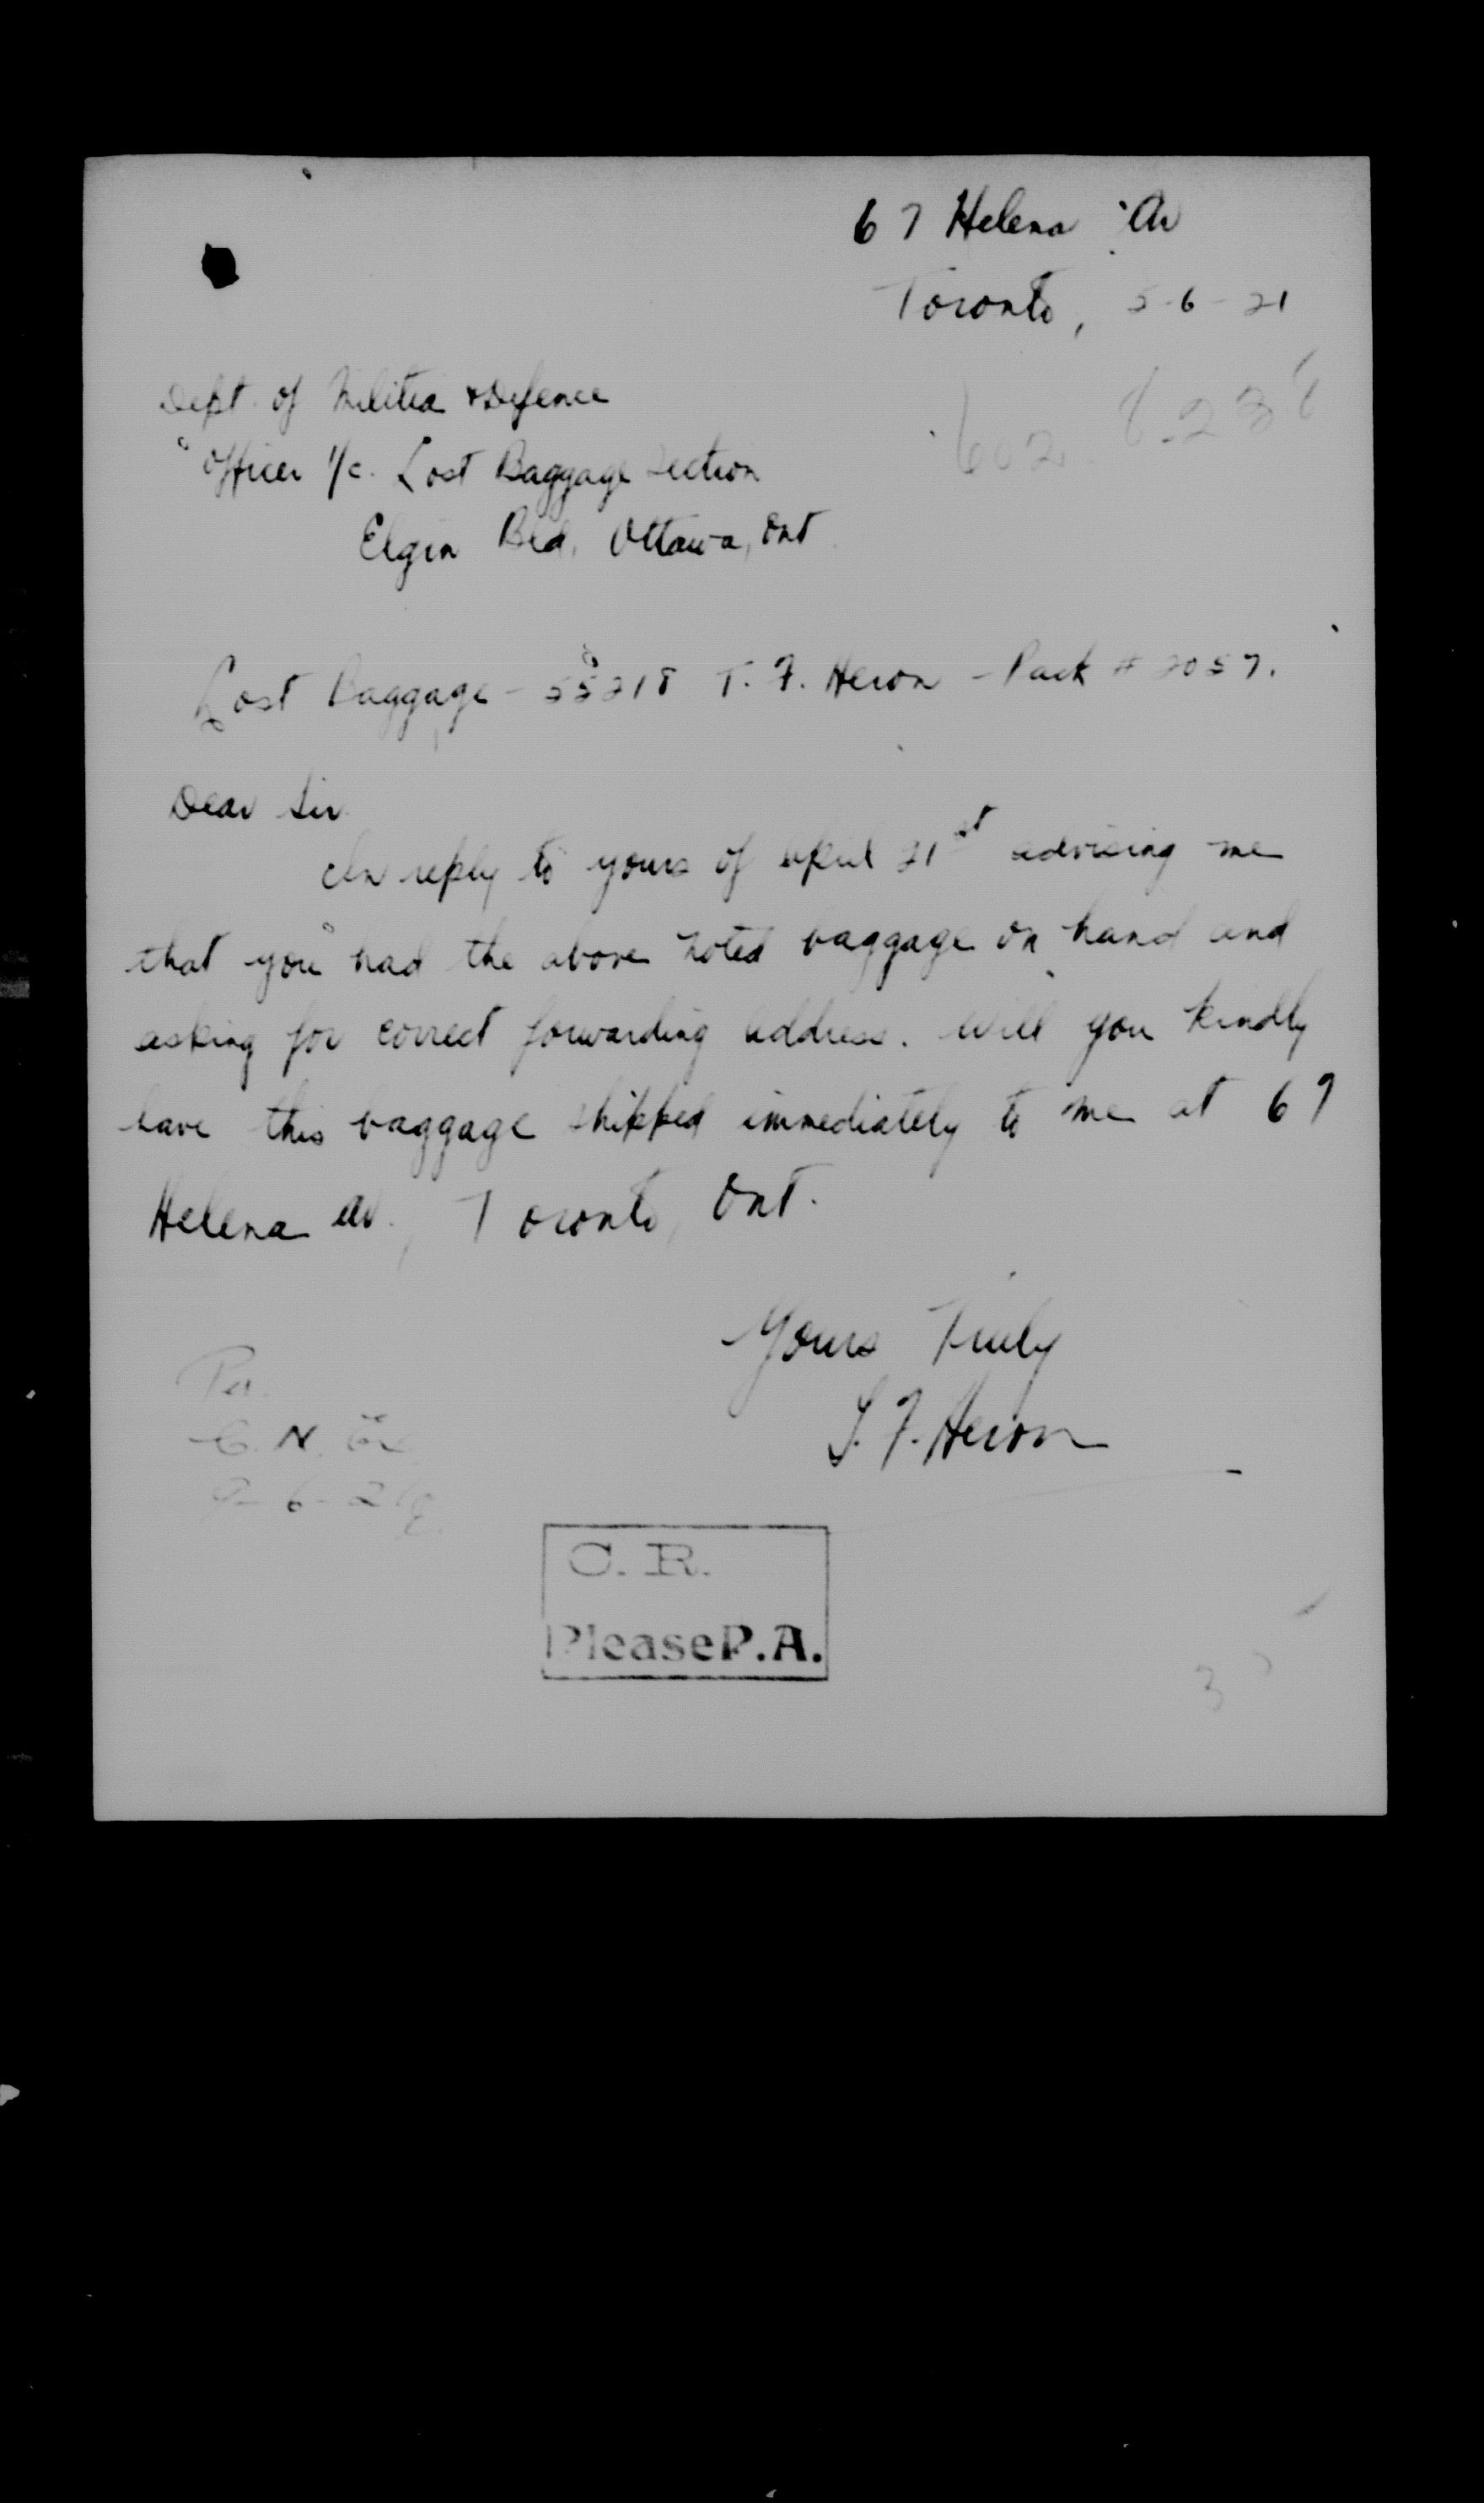 67 Helena Av
Toronto, 5-6-21
Dept. of Militia & Defence
602. 8.238
Officer i/c. Lost Baggage Section
Elgin Bld, Ottawa, Ont
Lost Baggage - 55218 T. F. Heron - Pack # 2057.
Dear Sir
In reply to yours of April 21st advising me
that you had the above noted baggage on hand and
asking for correct forwarding address. Will you kindly
have this baggage shipped immediately to me at 67
Helena Av., Toronto, Ont.
Yours Truly
T. F. Heron
Per.
C. N. Ex
9-6-21
C. R.
Please P.A.